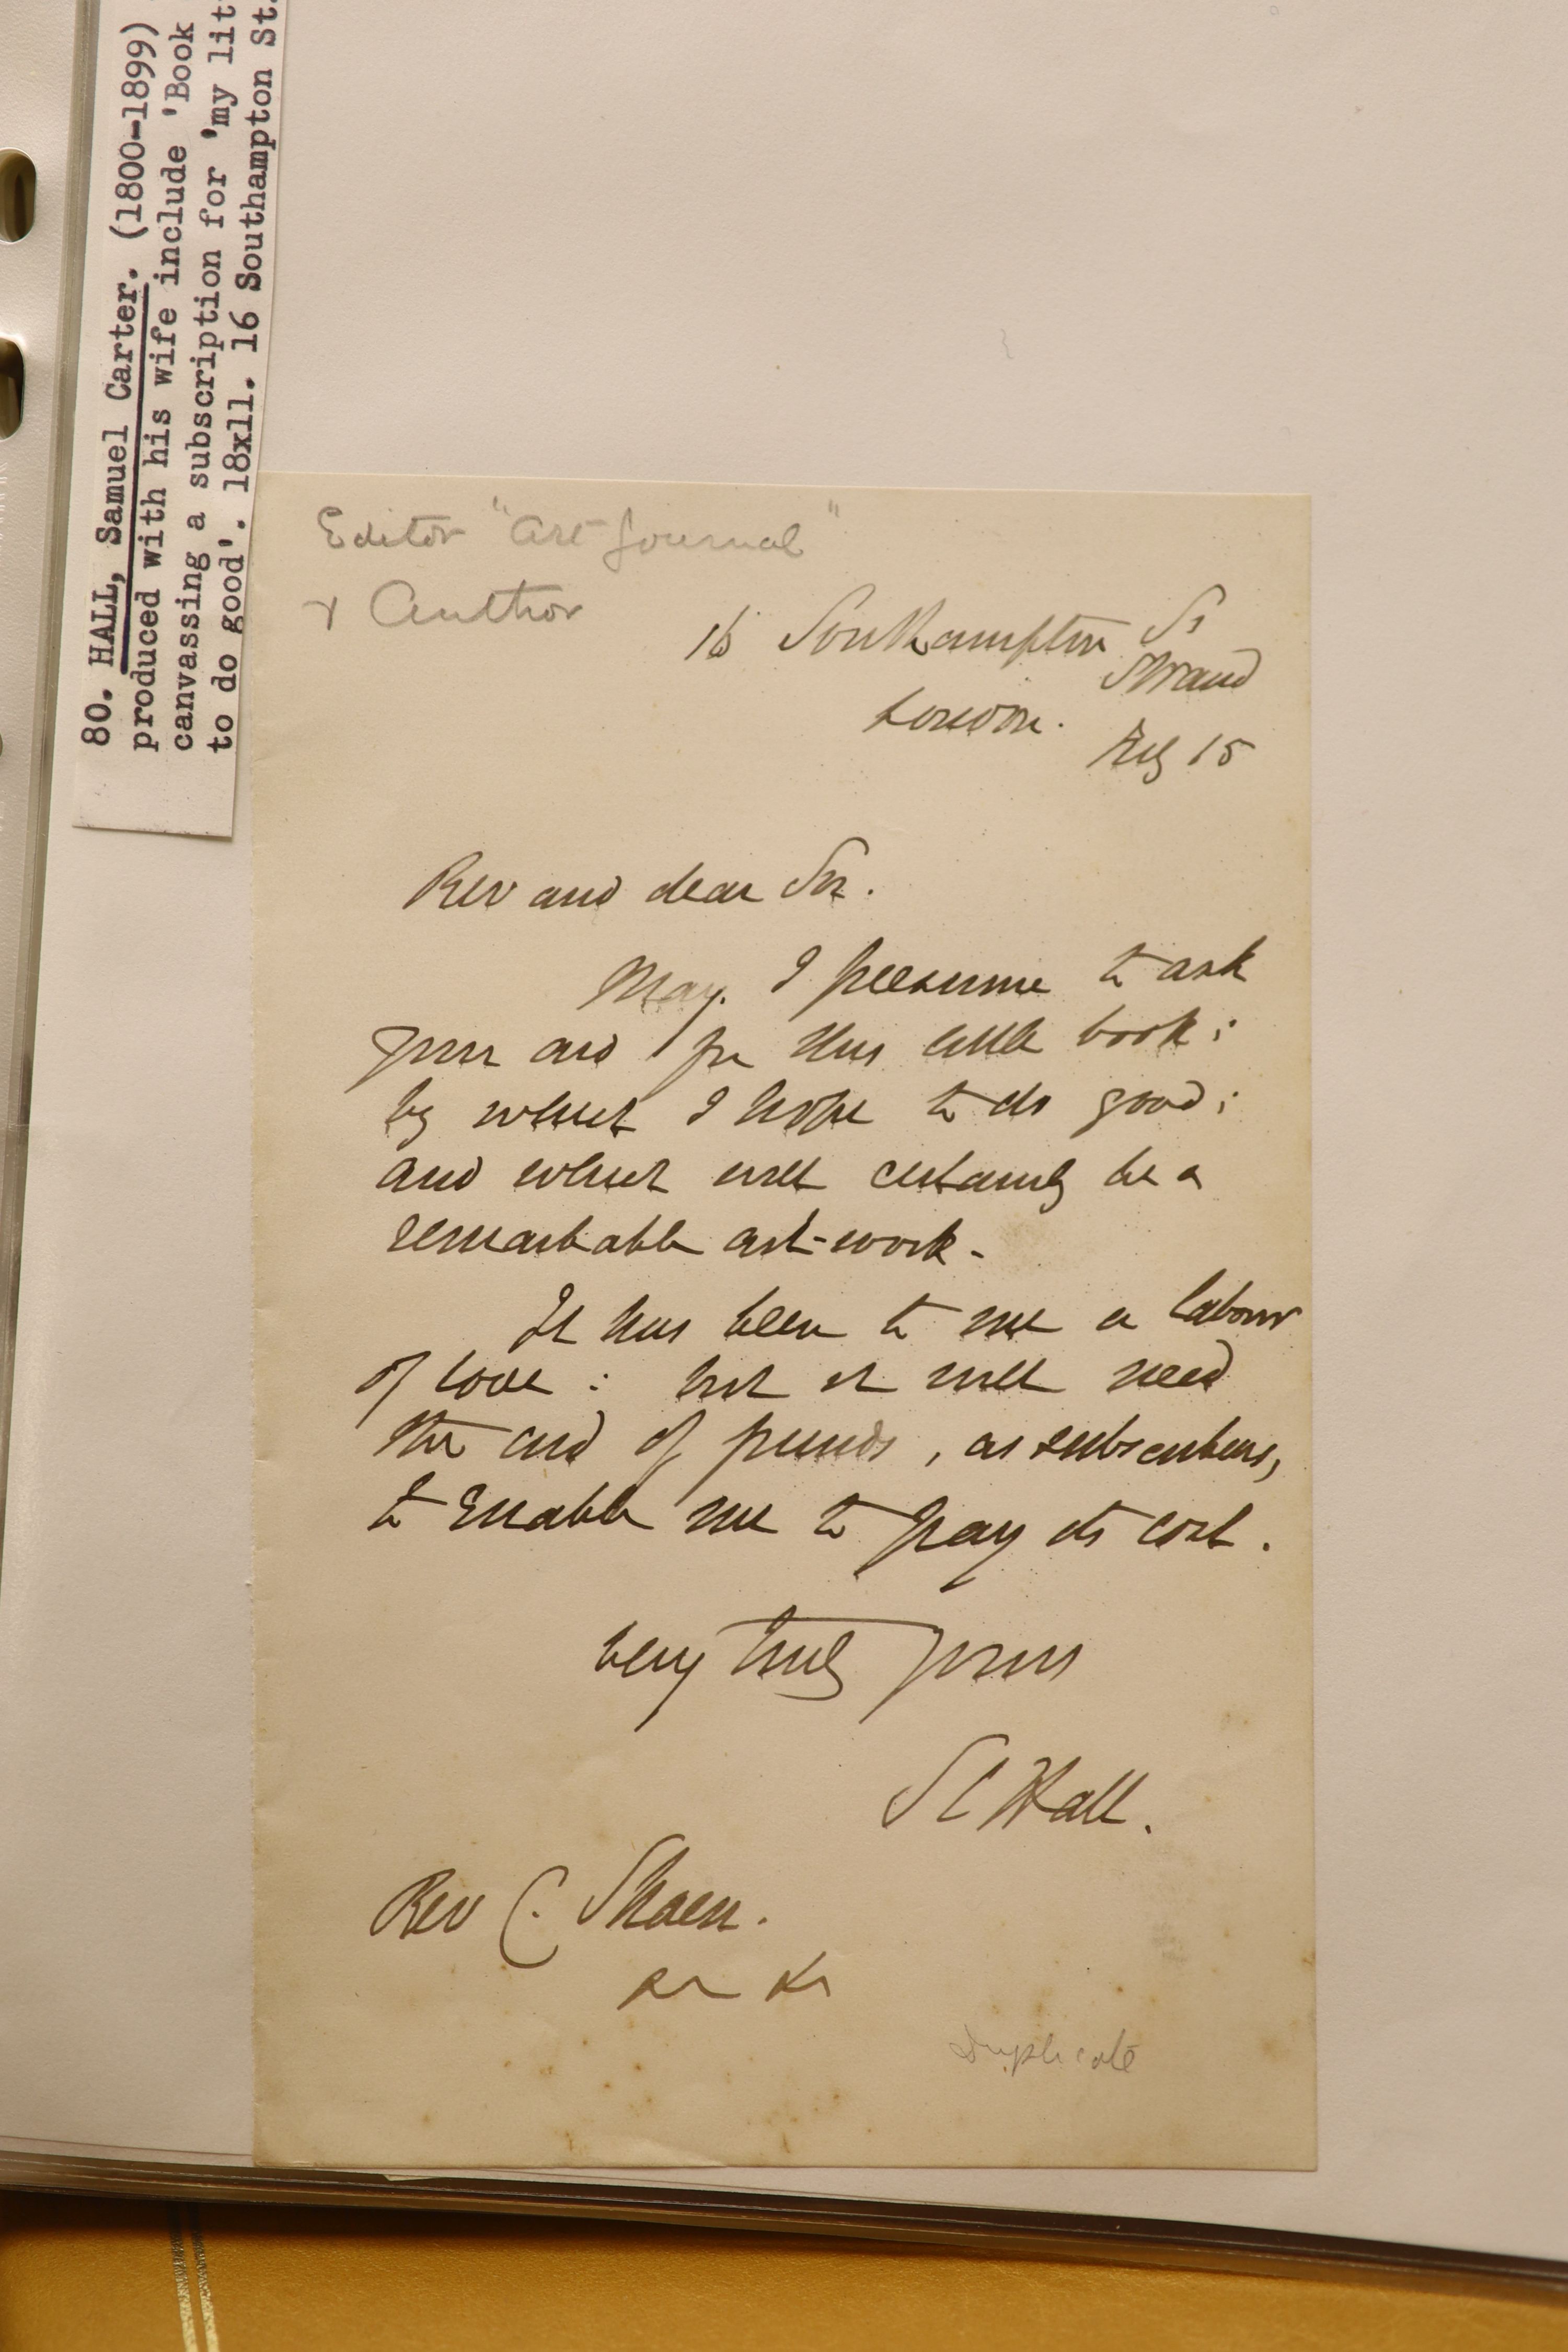 80. HALL, Samuel Carter. (1800-1899)
produced with his wife include 'Book
canvassing a subscription for 'my lit
to do good'. 18x11. 16 Southampton St.
Editor "Art Journal"
& Author
16 Southampton St
Strand
London.
15
Rev and dear Sir.
May I presume to ask
your aid for this little book;
by which I hope to do good;
and which will certainly be a
remarkable art-work-
It has been to me a labour
of love: but it will need
the aid of friends, as subscribers,
to enable me to pay its cost.
Very truly yours
S C Hall.
Rev C. Shaen.
Duplicate